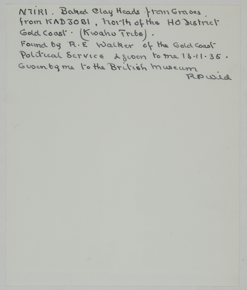 NTIRI. Baked Clay Heads from Graves
from KADJOBI, North of the HO District
Gold Coast. (Kwahu Tribe).
Found by R.E Walker of the Gold Coast
Political Service & given to me 13-11-35.
Given by me to the British Museum
R P Wild